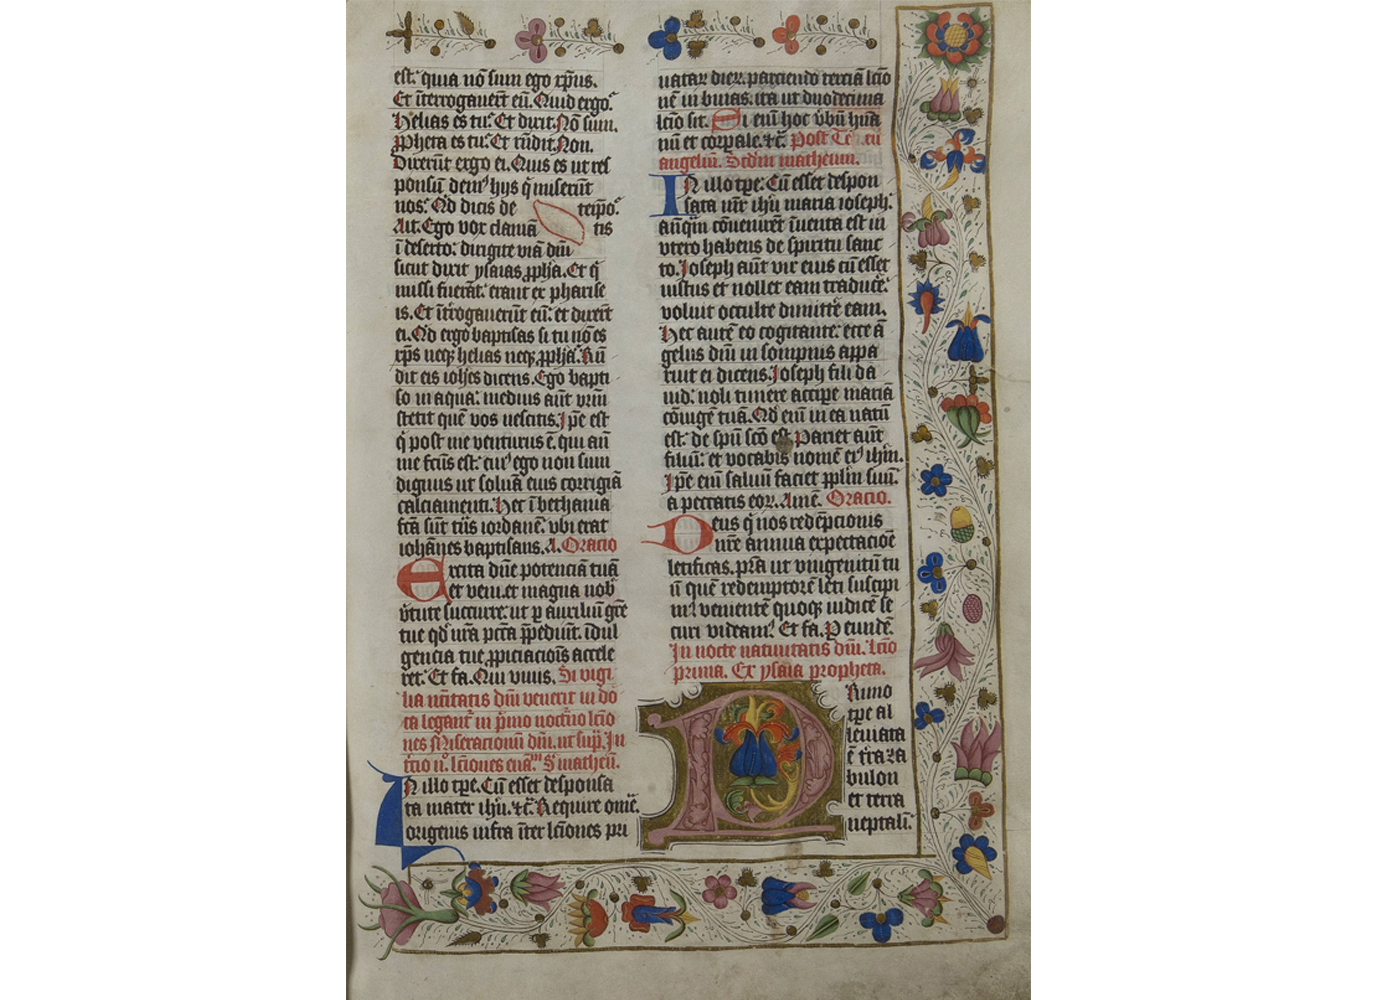 est. quia nō sum ego xp̄us.
Et īterrogauert̄ eū. Quid ergo.
Helias es tu. Et dixit. Nō sum.
Ꝓpheta es tu. Et rn̄dit. Non.
Dixerūt ergo ei. Quis es ut res
ponsū demꝰ hijs q̇ miserūt
nos. Qd dicis de teip̄o.
Ait. Ego vox clamā tis
ī deserto. dirigite viā dn̄i
sicut dixit ysaias ꝓph̄a. Et q̇
missi fuerāt. erant ex pharise
is. Et īt̄rogauerūt eū. et dixerūt
ei. Qd ergo baptisas si tu nō es
xp̄s neqꝫ helias neqꝫ ꝓph̄a. Rn̄
dit eis ioh̄es dicens. Ego bapti
so in aqua. medius aūt vrm̄
stetit quē vos nescitis. Ip̄e est
q̇ post me venturus ē. qui an̄
me fc̄us est. cuiꝰ ego non sum
dignus ut soluā eius corrigiā
calciamenti. Hec ī bethania
fc̄a sūt trās iordanē. vbi erat
iohānes baptisans. A. Oracio
Excita dn̄e potenciā tuā
et veni. et magna nob̄
v̇tute succurre. ut p auxiliū gr̄e
tue qd̄ nr̄a pcc̄a p̄pediūt. īdul
gencia tue ꝓpiciacionis accele
ret. Et fa. Qui viuis. Si vigi
lia natiuitatis dn̄i venerit in do
ca legant̄ in p̄mo noct̄no lc̄io
nes Miseracionū dn̄i. ut sup̄. In
t̄cio n̊. lc̄iones euāᵐ S matheū.
In illo tp̄e. Cū esset desponsa
ta mater ih̄u. ⁊c̄. Require omē.
origenis infra īter lc̄iones pri
uatar̄ dier̄. parciendo terciā lc̄io
nē in binas. ita ut duodecima
lc̄io sit. Si enī hoc v̇bū huīa
nū et corpale. ⁊c̄. Post Te. eū
angeliū. Scdm matheum.
In illo tp̄e. Cū esset despon
sata mr̄ ih̄u maria ioseph.
anq̄m cōuenirēt īuenta est in
vtero habens de spiritu sanc
to. Ioseph aūt vir eius cū esset
iustus et nollet eam traduce.
voluit occulte dimitte eam.
Hec autē eo cogitante. ecce ā
gelus dn̄i in sompnis appa
ruit ei dicens. Ioseph fili da
uid. noli timere accipe mariā
cōiugē tuā. Qd enī in ea natū
est. de spū sc̄o est. Pariet aūt
filiū. et vocabis nomē eiꝰ ih̄m.
Ip̄e enī saluū faciet pp̄lm suū.
a peccatis eoꝝ. Amē. Oracio.
Deus q̇ nos redēpcionis
nr̄e annua expectacioē
letificas. pr̄a ut vnigenitū tu
ū quē redemptorē leti suscipi
mꝰ. venientē quoqꝫ iudicē se
curi videamꝰ. Et fa. P eundē.
In nocte natiuitatis dn̄i. lc̄io
prima. Ex ysaia propheta.
Primo
tp̄e al
leuiata
ē t̄ra za
bulon
et terra
neptali.